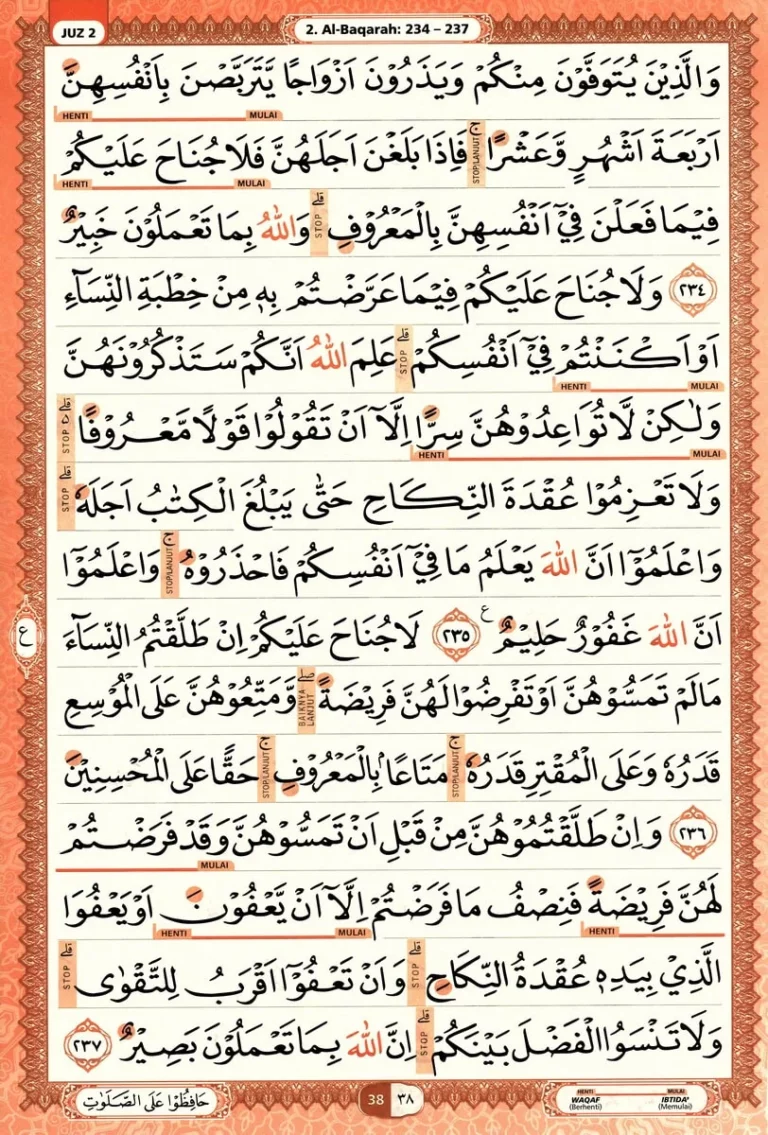 JUZ 2
2. Al-Baqarah: 234 – 237
وَالَّذِيْنَ يُتَوَفَّوْنَ مِنْكُمْ وَيَذَرُوْنَ اَزْوَاجًا يَّتَرَبَّصْنَ بِاَنْفُسِهِنَّ
HENTI MULAI
اَرْبَعَةَ اَشْهُرٍ وَّعَشْرًا ۚ فَاِذَا بَلَغْنَ اَجَلَهُنَّ فَلَا جُنَاحَ عَلَيْكُمْ
STOP/LANJUT
HENTI MULAI
فِيْمَا فَعَلْنَ فِيْٓ اَنْفُسِهِنَّ بِالْمَعْرُوْفِ ۗ وَاللّٰهُ بِمَا تَعْمَلُوْنَ خَبِيْرٌ
STOP
٢٣٤ وَلَا جُنَاحَ عَلَيْكُمْ فِيْمَا عَرَّضْتُمْ بِهٖ مِنْ خِطْبَةِ النِّسَاۤءِ
اَوْ اَكْنَنْتُمْ فِيْٓ اَنْفُسِكُمْ ۗ عَلِمَ اللّٰهُ اَنَّكُمْ سَتَذْكُرُوْنَهُنَّ
STOP
HENTI MULAI
وَلٰكِنْ لَّا تُوَاعِدُوْهُنَّ سِرًّا اِلَّآ اَنْ تَقُوْلُوْا قَوْلًا مَّعْرُوْفًا ۗ
STOP
HENTI MULAI
وَلَا تَعْزِمُوْا عُقْدَةَ النِّكَاحِ حَتّٰى يَبْلُغَ الْكِتٰبُ اَجَلَهٗ ۗ
STOP
وَاعْلَمُوْٓا اَنَّ اللّٰهَ يَعْلَمُ مَا فِيْٓ اَنْفُسِكُمْ فَاحْذَرُوْهُ ۚ وَاعْلَمُوْٓا
STOP/LANJUT
اَنَّ اللّٰهَ غَفُوْرٌ حَلِيْمٌ ࣖ ٢٣٥ لَا جُنَاحَ عَلَيْكُمْ اِنْ طَلَّقْتُمُ النِّسَاۤءَ
ع
مَا لَمْ تَمَسُّوْهُنَّ اَوْ تَفْرِضُوْا لَهُنَّ فَرِيْضَةً ۖ وَّمَتِّعُوْهُنَّ عَلَى الْمُوْسِعِ
BAIKNYA LANJUT
قَدَرُهٗ وَعَلَى الْمُقْتِرِ قَدَرُهٗ ۚ مَتَاعًا ۢبِالْمَعْرُوْفِ ۚ حَقًّا عَلَى الْمُحْسِنِيْنَ
STOP/LANJUT STOP/LANJUT
٢٣٦ وَاِنْ طَلَّقْتُمُوْهُنَّ مِنْ قَبْلِ اَنْ تَمَسُّوْهُنَّ وَقَدْ فَرَضْتُمْ
MULAI
لَهُنَّ فَرِيْضَةً فَنِصْفُ مَا فَرَضْتُمْ اِلَّآ اَنْ يَّعْفُوْنَ اَوْ يَعْفُوَا
HENTI MULAI HENTI
الَّذِيْ بِيَدِهٖ عُقْدَةُ النِّكَاحِ ۗ وَاَنْ تَعْفُوْٓا اَقْرَبُ لِلتَّقْوٰى ۗ
STOP STOP
وَلَا تَنْسَوُا الْفَضْلَ بَيْنَكُمْ ۗ اِنَّ اللّٰهَ بِمَا تَعْمَلُوْنَ بَصِيْرٌ ٢٣٧
STOP
حَافِظُوْا عَلَى الصَّلَوٰتِ
38 ٣٨
HENTI MULAI
WAQAF IBTIDA'
(Berhenti) (Memulai)